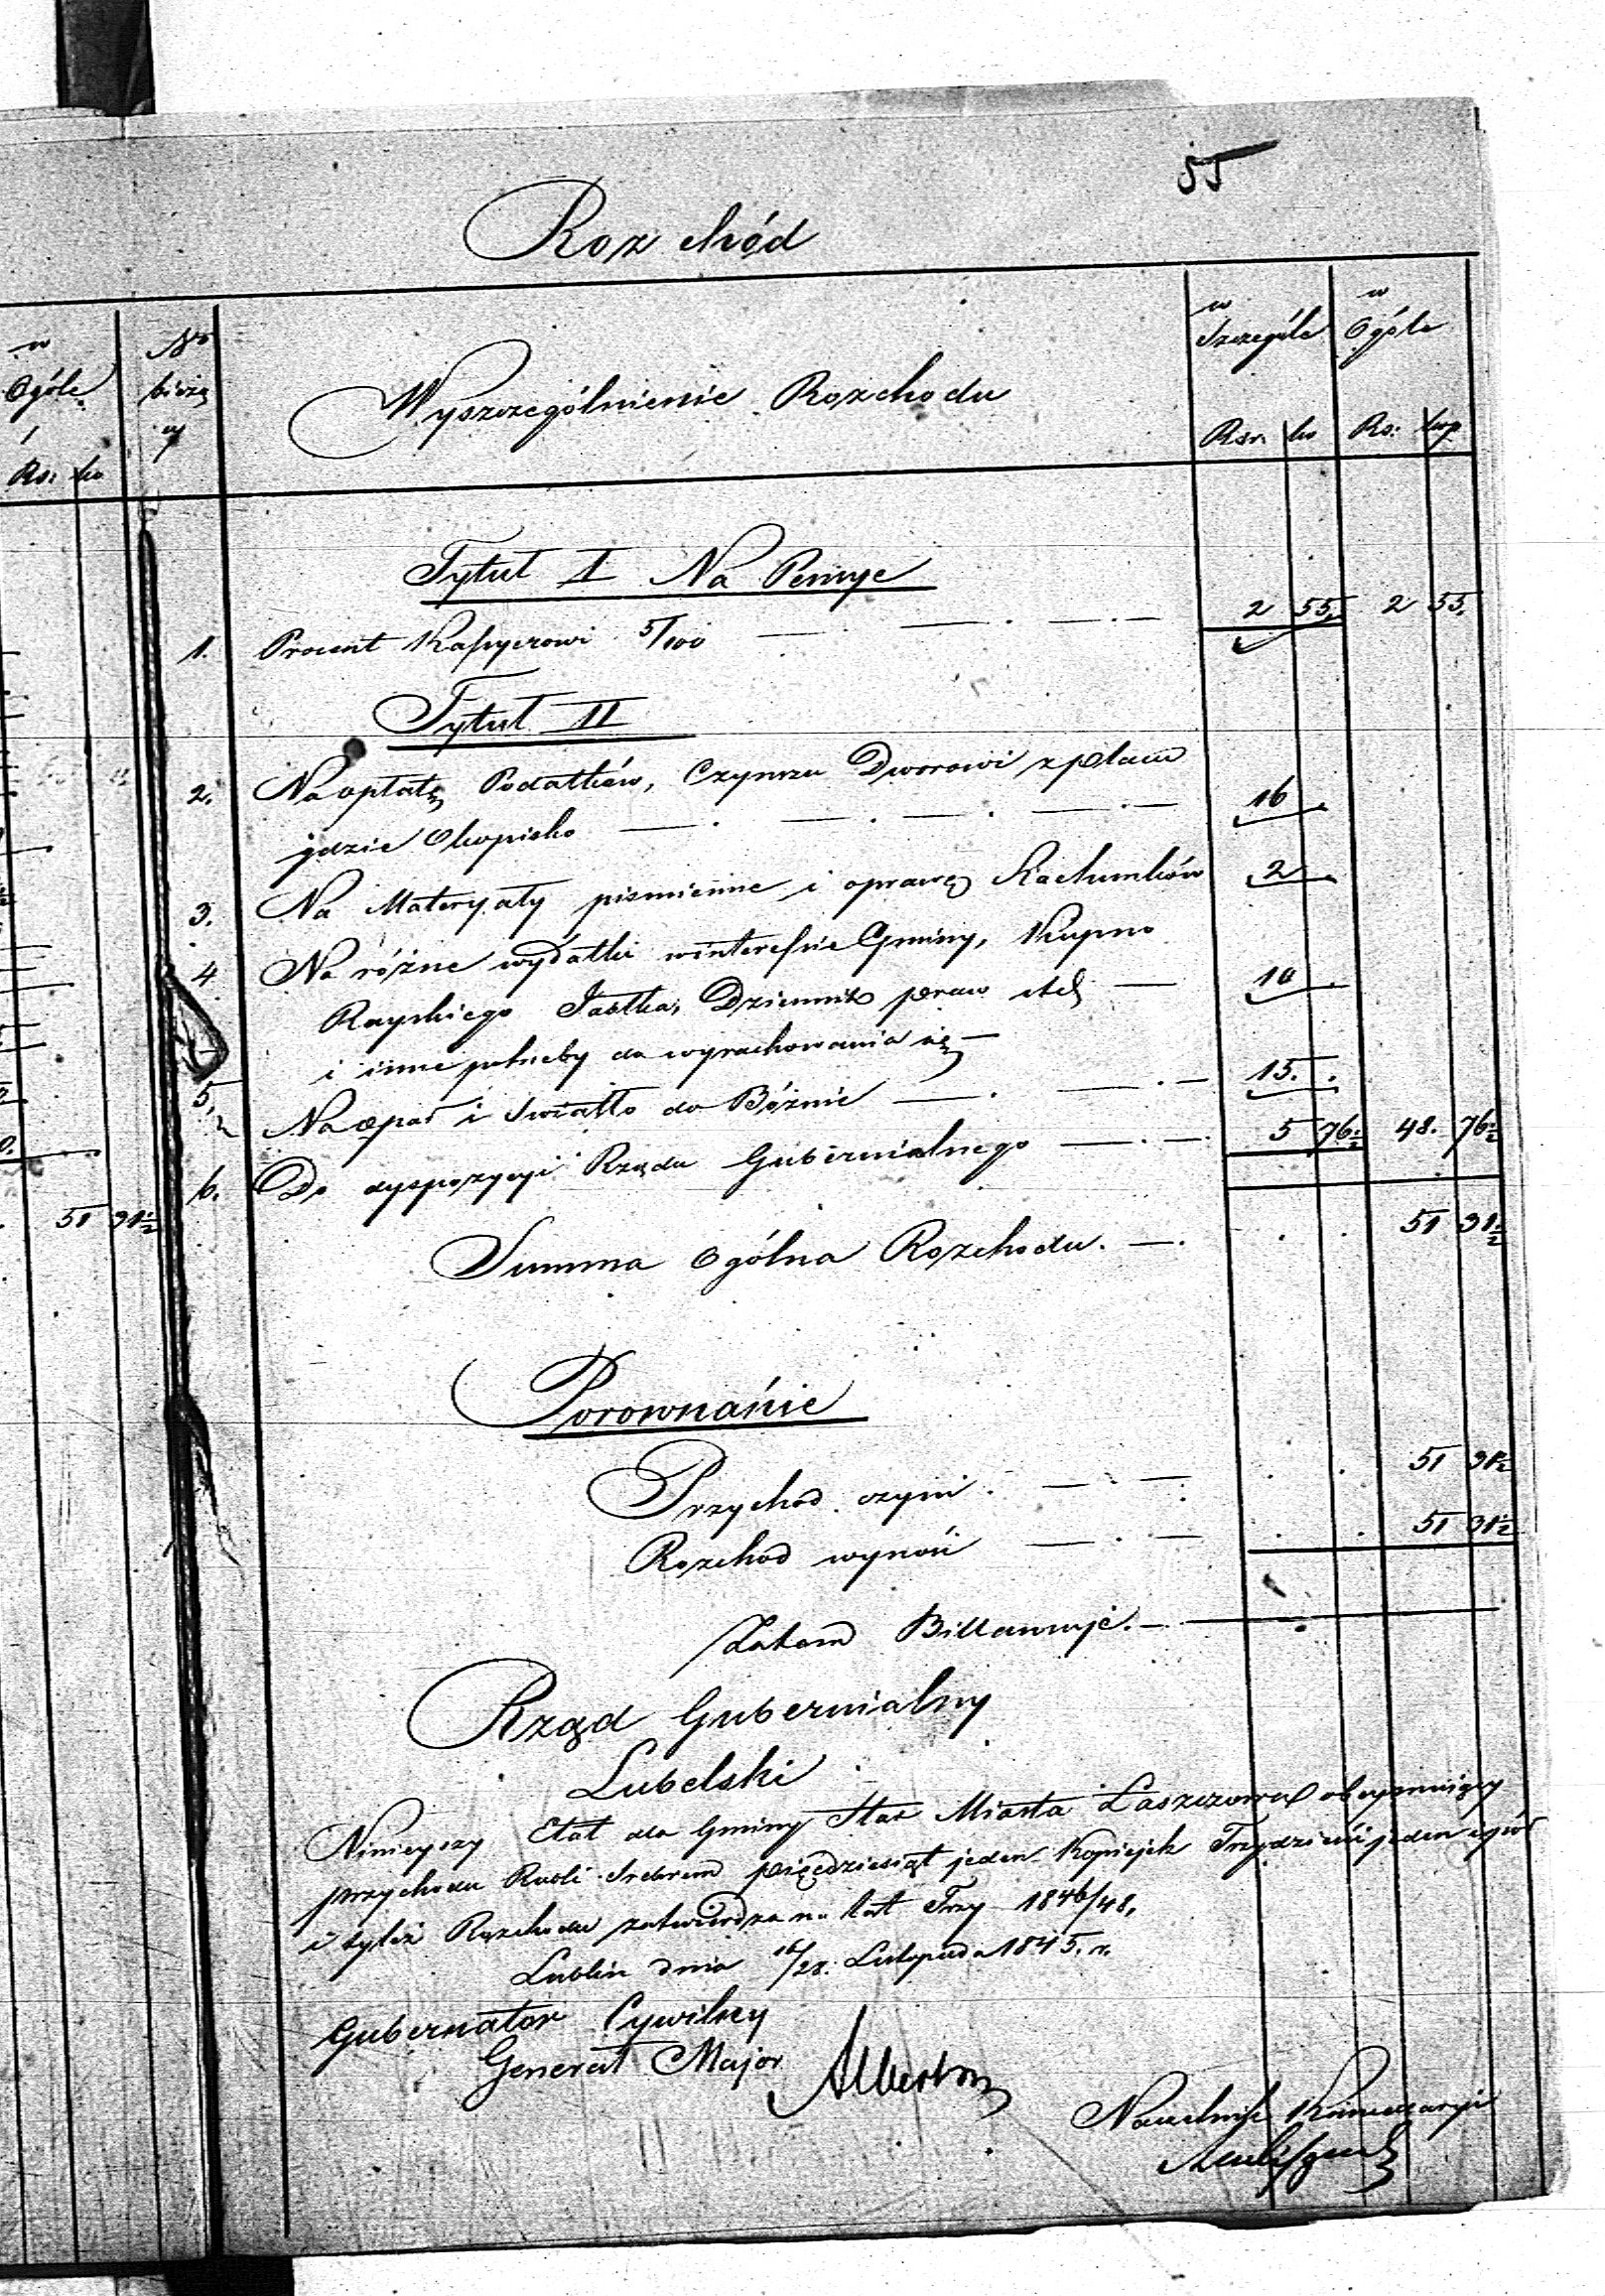 55
Rozchód
w Ogóle
Rs: ko
Nr bieżący
Wyszczególnienie Rozchodu
w Szczególe
w Ogóle
Rsr. ko Rs: kop
Tytuł I Na Pensye
1. Procent Kassyerowi 5/100 2 55. 2 55.
Tytuł II
2. Na opłatę Podatków, Czynszu Dworowi z placu
gdzie Okopisko 16
3. Na Materyały piśmienne i oprawę Rachunków 2
4 Na różne wydatki w interessie Gminy, Kupno
Rayskiego Jabłka, Dziennik praw etc 10
i inne potrzeby do wyrachowania się
5. Na opał i Światło do Bóżnic 15.
6. Do dyspozycyi Rządu Gubernialnego 5 76½ 48. 76½
51 31½
Summa Ogólna Rozchodu. 51 31½
Porownanie
Przychód czyni 51 31½
Rozchod wynosi 51 31½
Zatem Billansuje.
Rząd Gubernialny
Lubelski
Ninieyszy Etat dla Gminy Star Miasta Łaszczowa obeymuiący
przychodu Rubli Srebrem pięćdziesiąt jeden Kopiejek Trzydzieści jeden i pół
i tyleż Rozchodu zatwierdza na lat Trzy 1846/48.
Lublin dnia 16/28. Listopada 1845. r.
Gubernator Cywilny
Generał Major
Albertow
Naczelnik Kancellaryi